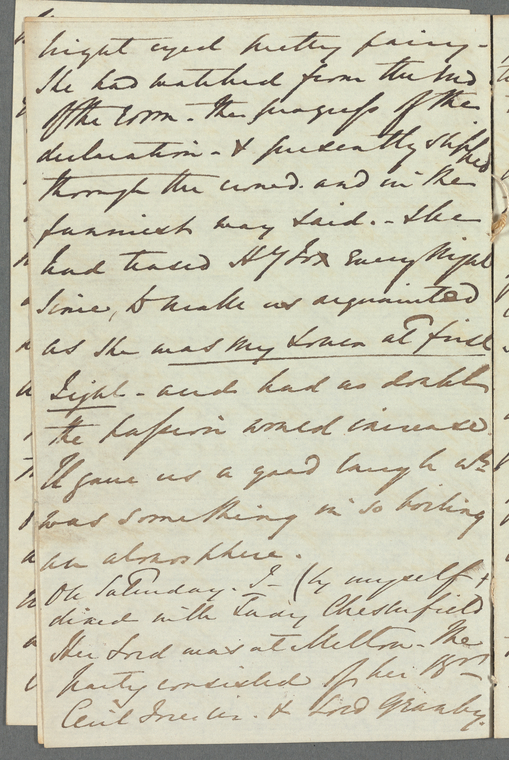 bright eyed pretty fairy -
She had watched from the End
Of the Room - the progress of the
declaration - & presently slipped
through the crowd. and in the
funniest way said. - She
had teased Hy Fox Every Night
Since, to make us acquainted
as she was my Lover at first
Sight - and had no doubt
the passion would increase
It gave us a good laugh wh
was something in so boiling
an atmosphere.
On Saturday. I - (by myself)
dined with Lady Chesterfield
Her Lord was at Melton - The
party consisted of her
Cecil & Lord Granby.